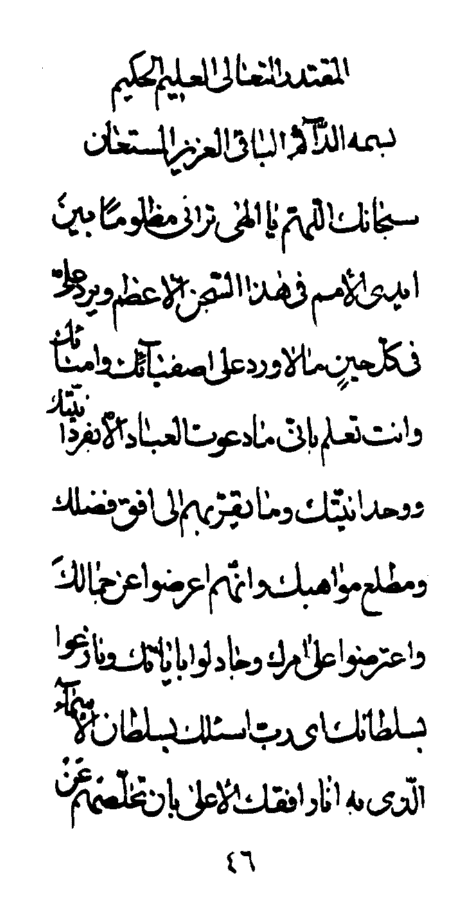 المقتدر المتعالی العلیم الحکیم
بسمه الدّآئم الباقی العزیز المستعان
سبحانک اللّهمّ یا الهی ترانی مظلوماً بین
ایدی الأمم فی هذا السّجن الاعظم ویرد علیّ
فی کلّ حین ما لا ورد علی اصفیآئک وامنائک
وانت تعلم بانّی ما دعوت العباد الّا بفردانیّتک
ووحدانیّتک وما یقرّبهم الی افق فضلک
ومطلع مواهبک وانّهم اعرضوا عن جمالک
واعترضوا علی امرک وجادلوا بایاتک ونازعوا
بسلطانک ای ربّ اسئلک بسلطان الأسمآء
الّذی به انار افقک الأعلی بان تخلّصهم عن
٤٦